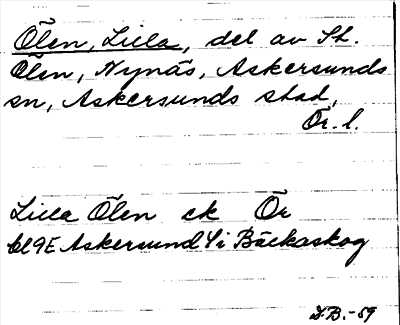 Ölen, Lilla, del av St.
Ölen, Nynäs, Askersunds
sn, Askersunds stad,
Ör. l.
Lilla Ölen ek Ör
bl 9E Askersund 4 i Bäckaskog
D.B. -59